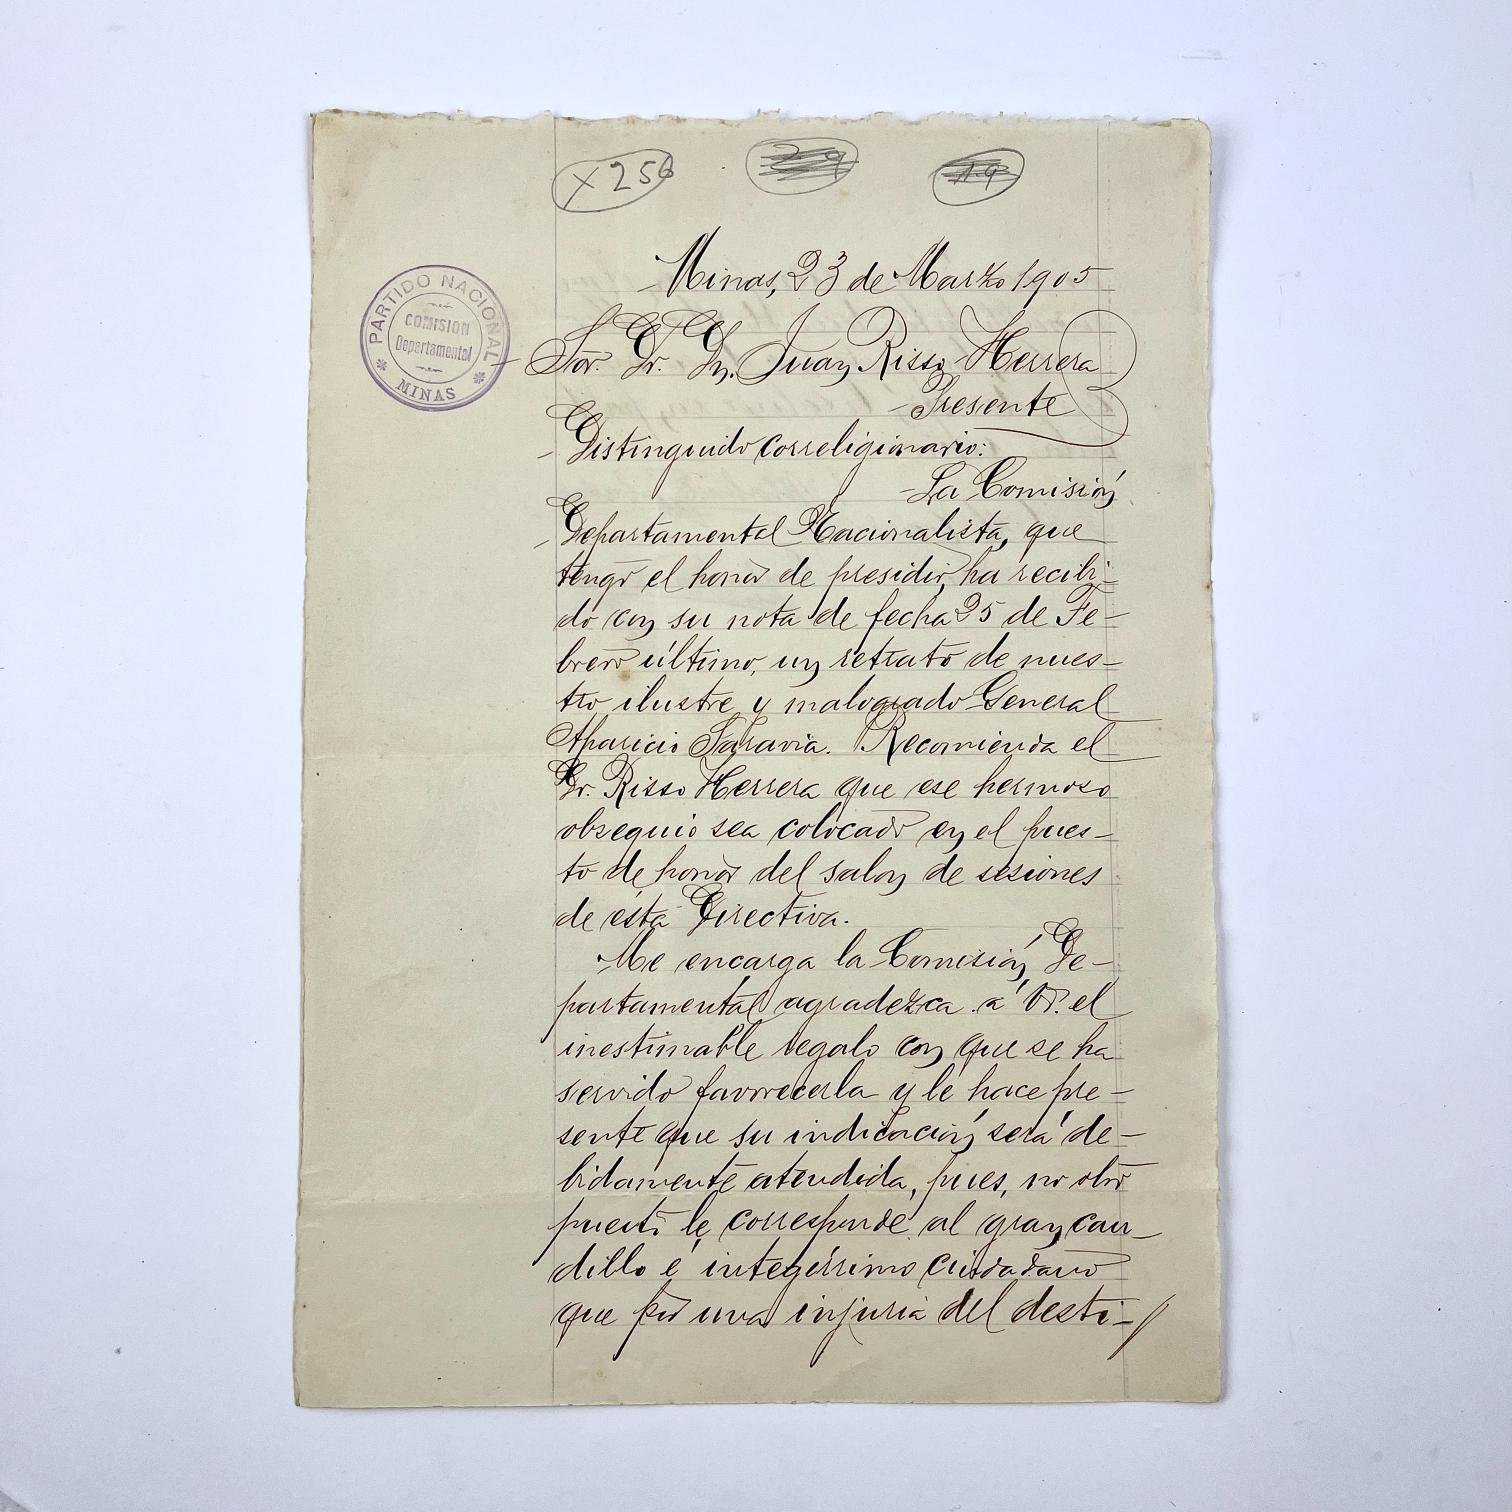 X 256
29
19
PARTIDO NACIONAL
COMISION
Departamental
MINAS
Minas, 23 de Marzo 1905
Sor. Dr. Dn. Juan Risso Herrera
Presente
Distinguido correligionario:
La Comisión
Departamental Nacionalista, que
tengo el honor de presidir, ha recibi-
do con su nota de fecha 25 de Fe-
brero último, un retrato de nues-
tro ilustre y malogrado General
Aparicio Saravia. Recomienda el
Dr. Risso Herrera que ese hermoso
obsequio sea colocado en el pues-
to de honor del salon de sesiones
de ésta Directiva.
Me encarga la Comisión De-
partamental agradezca á Vd. el
inestimable regalo con que se ha
servido favorecerla y le hace pre-
sente que su indicación será de-
bidamente atendida, pues, no otro
puesto le corresponde al gran cau-
dillo é integérrimo ciudadano
que por una injuria del desti-